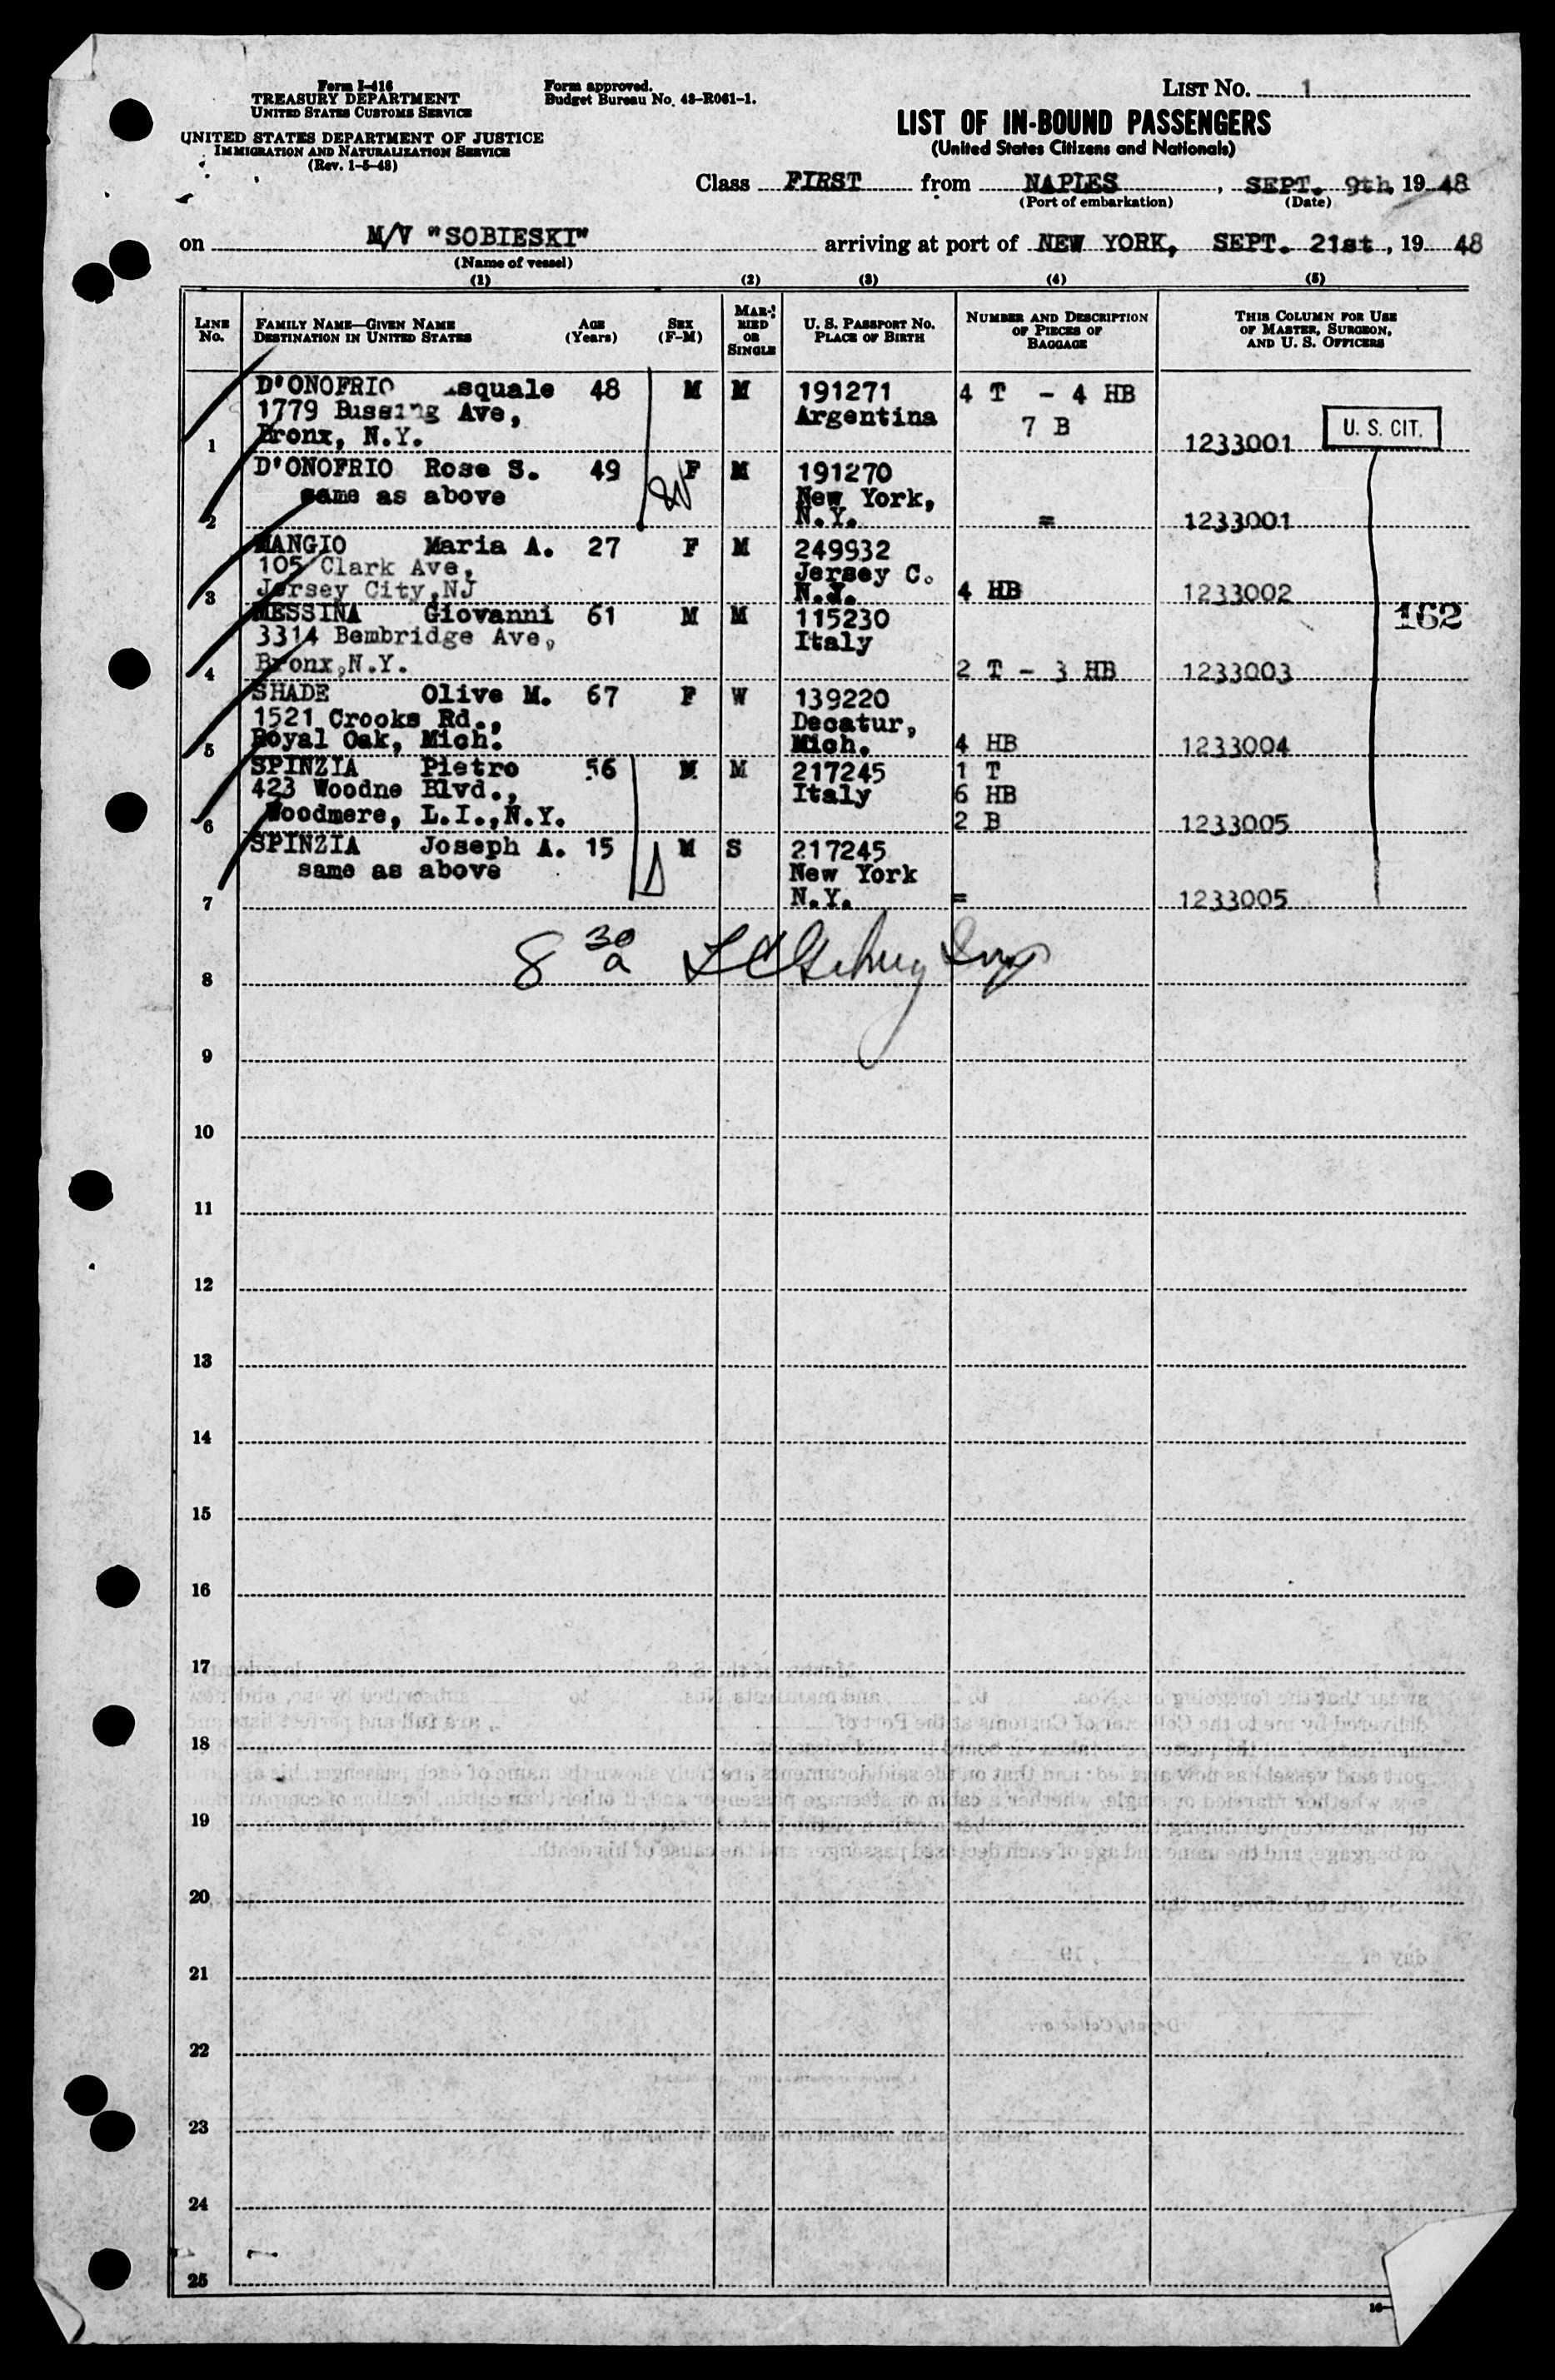 Form I-416
TREASURY DEPARTMENT
UNITED STATES CUSTOMS SERVICE
UNITED STATES DEPARTMENT OF JUSTICE
IMMIGRATION AND NATURALIZATION SERVICE
(Rev. 1-5-48)
Form approved.
Budget Bureau No. 43-R061-1.
LIST No. 1
LIST OF IN-BOUND PASSENGERS
(United States Citizens and Nationals)
Class FIRST from NAPLES, SEPT. 9th, 19 48
(Port of embarkation) (Date)
on M/V "SOBIESKI" arriving at port of NEW YORK, SEPT. 21st, 19 48
(Name of vessel)
(1) (2) (3) (4) (5)
LINE No. FAMILY NAME—GIVEN NAME DESTINATION IN UNITED STATES AGE (Years) SEX (F-M) MARRIED OR SINGLE U. S. PASSPORT No. PLACE OF BIRTH NUMBER AND DESCRIPTION OF PIECES OF BAGGAGE THIS COLUMN FOR USE OF MASTER, SURGEON, AND U. S. OFFICERS
D'ONOFRIO squale 48 M M 191271 4 T - 4 HB
1779 Bussing Ave, Argentina 7 B
1 Bronx, N.Y. 1233001 U. S. CIT.
D'ONOFRIO Rose S. 49 F M 191270
same as above New York,
2 N.Y. = 1233001
MANGIO Maria A. 27 F M 249932
105 Clark Ave, Jersey C.
3 Jersey City,NJ N.J. 4 HB 1233002
MESSINA Giovanni 61 M M 115230 162
3314 Bembridge Ave, Italy
4 Bronx,N.Y. 2 T - 3 HB 1233003
SHADE Olive M. 67 F W 139220
1521 Crooks Rd., Decatur,
5 Royal Oak, Mich. Mich. 4 HB 1233004
SPINZIA Pietro 56 M M 217245 1 T
423 Woodne Blvd., Italy 6 HB
6 Woodmere, L.I.,N.Y. 2 B 1233005
SPINZIA Joseph A. 15 M S 217245
same as above New York
7 N.Y. = 1233005
8 30 a
8
9
10
11
12
13
14
15
16
17
18
19
20
21
22
23
24
25